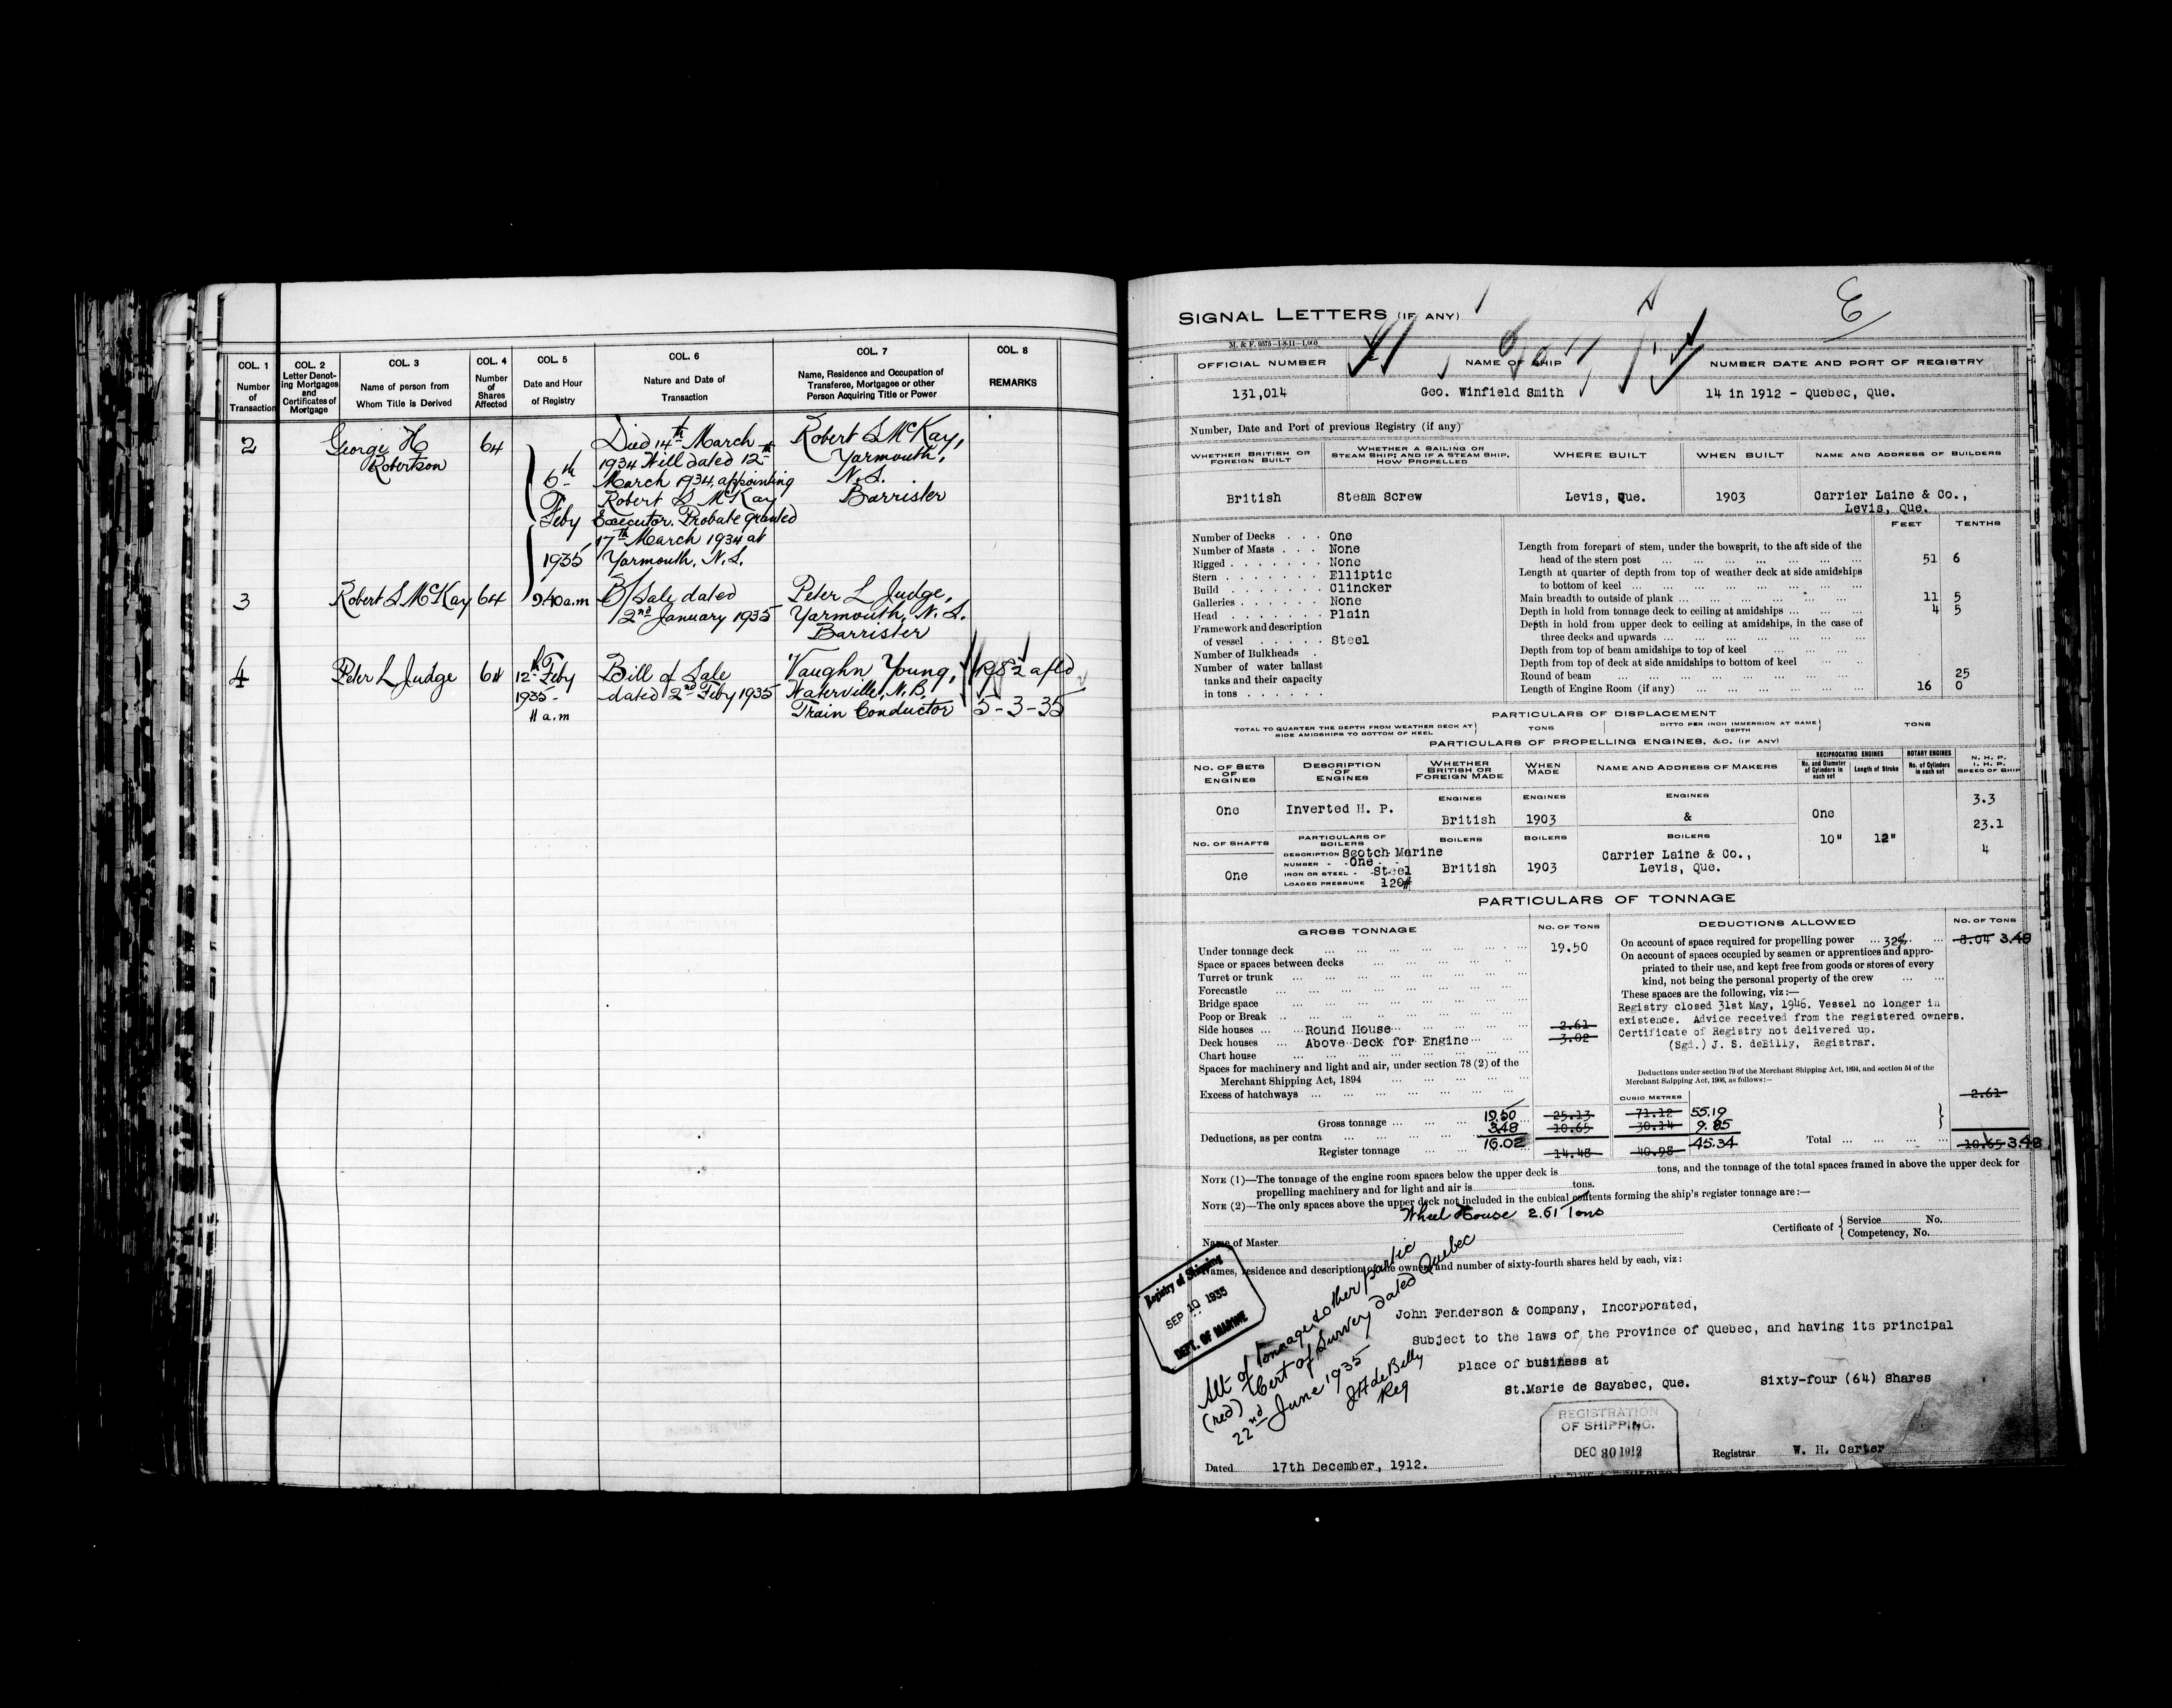 COL. 1 COL. 2 COL. 3 COL. 4 COL. 5 COL. 6 COL. 7 COL. 8
Number of Transaction
Letter Denoting Mortgages and Certificates of Mortgage
Name of person from Whom Title is Derived
Number of Shares Affected
Date and Hour of Registry
Nature and Date of Transaction
Name, Residence and Occupation of Transferee, Mortgagee or other Person Acquiring Title or Power
REMARKS
2 George H Robertson 64
6th Feby 1935
Died 14th March
1934 Will dated 12th
March 1934, appointing
Robert S McKay
Executor. Probate granted
17th March 1934 at
Yarmouth, N.S.
Robert S McKay,
Yarmouth,
N.S.
Barrister
3 Robert S McKay 64 9.40 a.m
B/Sale dated
2nd January 1935
Peter L Judge,
Yarmouth, N.S.
Barrister
4 Peter L Judge 64
12th Feby
1935
11 a.m
Bill of Sale
dated 2nd Feby 1935
Vaughn Young,
Waterville, N.B.
Train Conductor
5-3-35
SIGNAL LETTERS (IF ANY)
M. & F. 0575-1-8-11-1,000
OFFICIAL NUMBER NAME OF SHIP NUMBER DATE AND PORT OF REGISTRY
131,014 Geo. Winfield Smith 14 in 1912 - Quebec, Que.
Number, Date and Port of previous Registry (if any)
WHETHER BRITISH OR FOREIGN BUILT
WHETHER A SAILING OR STEAM SHIP; AND IF A STEAM SHIP, HOW PROPELLED
WHERE BUILT WHEN BUILT NAME AND ADDRESS OF BUILDERS
British Steam Screw Levis, Que. 1903 Carrier Laine & Co.,
Levis, Que.
FEET TENTHS
Number of Decks . . . One
Number of Masts . . . None
Rigged . . . . . . . None
Stern . . . . . . . Elliptic
Build . . . . . . . Clincker
Galleries . . . . . . None
Head . . . . . . . Plain
Framework and description
of vessel . . . . . Steel
Number of Bulkheads .
Number of water ballast
tanks and their capacity
in tons . . . . . .
Length from forepart of stem, under the bowsprit, to the aft side of the
head of the stern post 51 6
Length at quarter of depth from top of weather deck at side amidships
to bottom of keel
Main breadth to outside of plank 11 5
Depth in hold from tonnage deck to ceiling at amidships 4 5
Depth in hold from upper deck to ceiling at amidships, in the case of
three decks and upwards
Depth from top of beam amidships to top of keel
Depth from top of deck at side amidships to bottom of keel
Round of beam 25
Length of Engine Room (if any) 16 0
PARTICULARS OF DISPLACEMENT
TOTAL TO QUARTER THE DEPTH FROM WEATHER DECK AT SIDE AMIDSHIPS TO BOTTOM OF KEEL TONS DITTO PER INCH IMMERSION AT SAME DEPTH TONS
PARTICULARS OF PROPELLING ENGINES, &C. (IF ANY)
NO. OF SETS OF ENGINES
DESCRIPTION OF ENGINES
WHETHER BRITISH OR FOREIGN MADE
WHEN MADE
NAME AND ADDRESS OF MAKERS
RECIPROCATING ENGINES
No. and Diameter of Cylinders in each set
Length of Stroke
ROTARY ENGINES
No. of Cylinders in each set
N. H. P.
I. H. P.
SPEED OF SHIP
ENGINES ENGINES ENGINES
One Inverted H. P. British 1903 & One 3.3
23.1
NO. OF SHAFTS PARTICULARS OF BOILERS BOILERS BOILERS BOILERS 10" 12" 4
DESCRIPTION Scotch Marine
NUMBER One
IRON OR STEEL Steel
LOADED PRESSURE 120#
One British 1903 Carrier Laine & Co.,
Levis, Que.
PARTICULARS OF TONNAGE
GROSS TONNAGE NO. OF TONS DEDUCTIONS ALLOWED NO. OF TONS
Under tonnage deck 19.50
Space or spaces between decks
Turret or trunk
Forecastle
Bridge space
Poop or Break
Side houses Round House 2.61
Deck houses Above Deck for Engine 3.02
Chart house
Spaces for machinery and light and air, under section 78 (2) of the
Merchant Shipping Act, 1894
Excess of hatchways
On account of space required for propelling power 32% 8.04 3.48
On account of spaces occupied by seamen or apprentices and appro-
priated to their use, and kept free from goods or stores of every
kind, not being the personal property of the crew
These spaces are the following, viz:—
Registry closed 31st May, 1946. Vessel no longer in
existence. Advice received from the registered owners.
Certificate of Registry not delivered up.
(Sgd.) J. S. deBilly, Registrar.
Deductions under section 79 of the Merchant Shipping Act, 1894, and section 54 of the
Merchant Shipping Act, 1906, as follows:—
CUBIC METRES 2.61
Gross tonnage 19.50 25.13 71.12 55.19
Deductions, as per contra 3.48 10.65 30.14 9.85
Register tonnage 16.02 14.48 40.98 45.34
Total 10.65 3.48
NOTE (1)—The tonnage of the engine room spaces below the upper deck is tons, and the tonnage of the total spaces framed in above the upper deck for
propelling machinery and for light and air is tons.
NOTE (2)—The only spaces above the upper deck not included in the cubical contents forming the ship's register tonnage are:—
Wheel House 2.61 Tons
Name of Master Certificate of { Service No.
Competency, No.
Names, residence and description of the owners and number of sixty-fourth shares held by each, viz:
Registry of Shipping
SEP 10 1935
DEPT. OF MARINE
Alt of Tonnage & other partic
(red) Cert of Survey dated Quebec
22nd June 1935
deBilly
Reg
John Fenderson & Company, Incorporated,
Subject to the laws of the Province of Quebec, and having its principal
place of business at
St.Marie de Sayabec, Que. Sixty-four (64) Shares
REGISTRATION
OF SHIPPING.
DEC 30 1912
Registrar W. H. Carter
Dated 17th December, 1912.